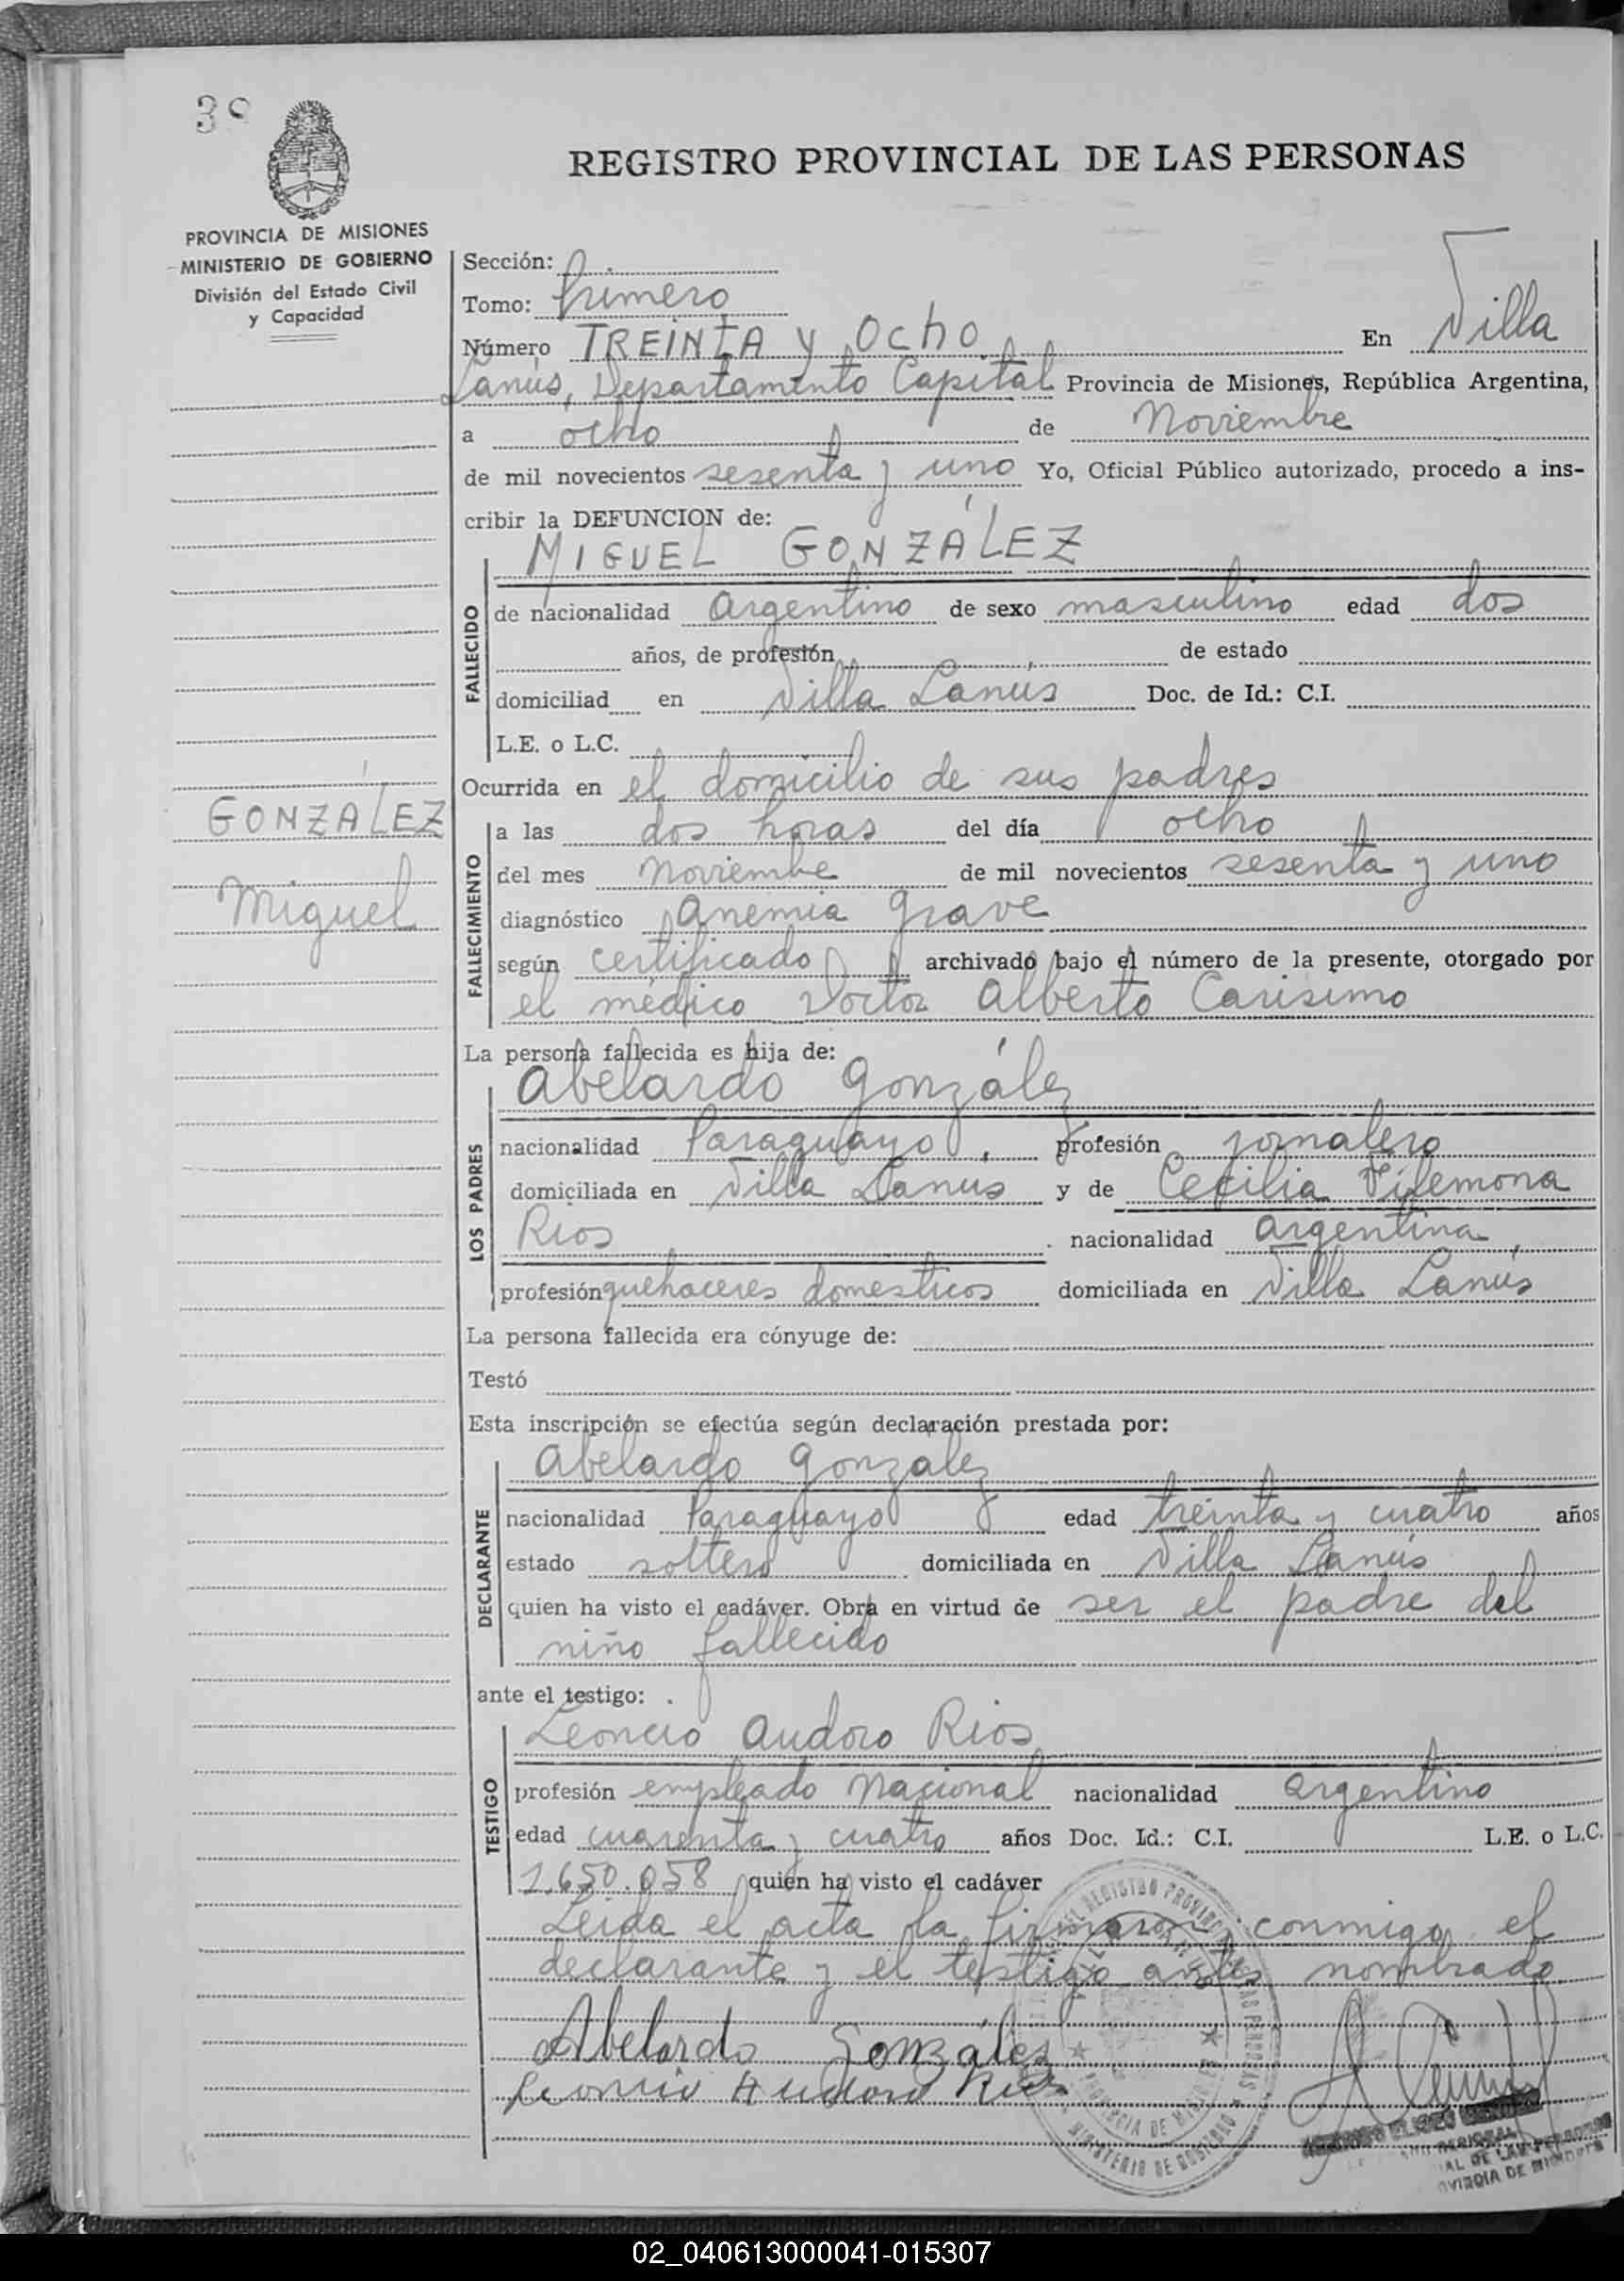 38
REGISTRO PROVINCIAL DE LAS PERSONAS
PROVINCIA DE MISIONES
MINISTERIO DE GOBIERNO
División del Estado Civil
y Capacidad
Sección:
Tomo: Primero
Número TREINTA y Ocho En Villa
Lanús, Departamento Capital Provincia de Misiones, República Argentina,
a ocho de Noviembre
de mil novecientos sesenta y uno Yo, Oficial Público autorizado, procedo a ins-
cribir la DEFUNCION de:
MIGUEL GONZÁLEZ
FALLECIDO
de nacionalidad argentino de sexo masculino edad dos
años, de profesión de estado
domiciliad en Villa Lanús Doc. de Id.: C.I.
L.E. o L.C.
Ocurrida en el domicilio de sus padres
GONZÁLEZ
Miguel
FALLECIMIENTO
a las dos horas del día ocho
del mes Noviembre de mil novecientos sesenta y uno
diagnóstico anemia grave
según certificado archivado bajo el número de la presente, otorgado por
el médico Doctor Alberto Carísimo
La persona fallecida es hija de:
Abelardo González
LOS PADRES
nacionalidad Paraguayo, profesión jornalero
domiciliada en Villa Lanus y de Cecilia Filemona
Rios . nacionalidad argentina,
profesión quehaceres domesticos domiciliada en Villa Lanús
La persona fallecida era cónyuge de:
Testó
Esta inscripción se efectúa según declaración prestada por:
Abelardo Gonzalez
DECLARANTE
nacionalidad Paraguayo edad treinta y cuatro años
estado soltero domiciliada en Villa Lanús
quien ha visto el cadáver. Obra en virtud de ser el padre del
niño fallecido
ante el testigo:
Leoncio Audoro Rios
TESTIGO
profesión empleado Nacional nacionalidad argentino
edad cuarenta y cuatro años Doc. Id.: C.I. L.E. o L.C.
1.650.058 quien ha visto el cadáver
Leida el acta la firmaron conmigo el
declarante y el testigo antes nombrado
Abelardo González
Leoncio Audoro Rios
MINISTERIO DE GOBIERNO
PROVINCIA DE MISIONES
02_040613000041-015307